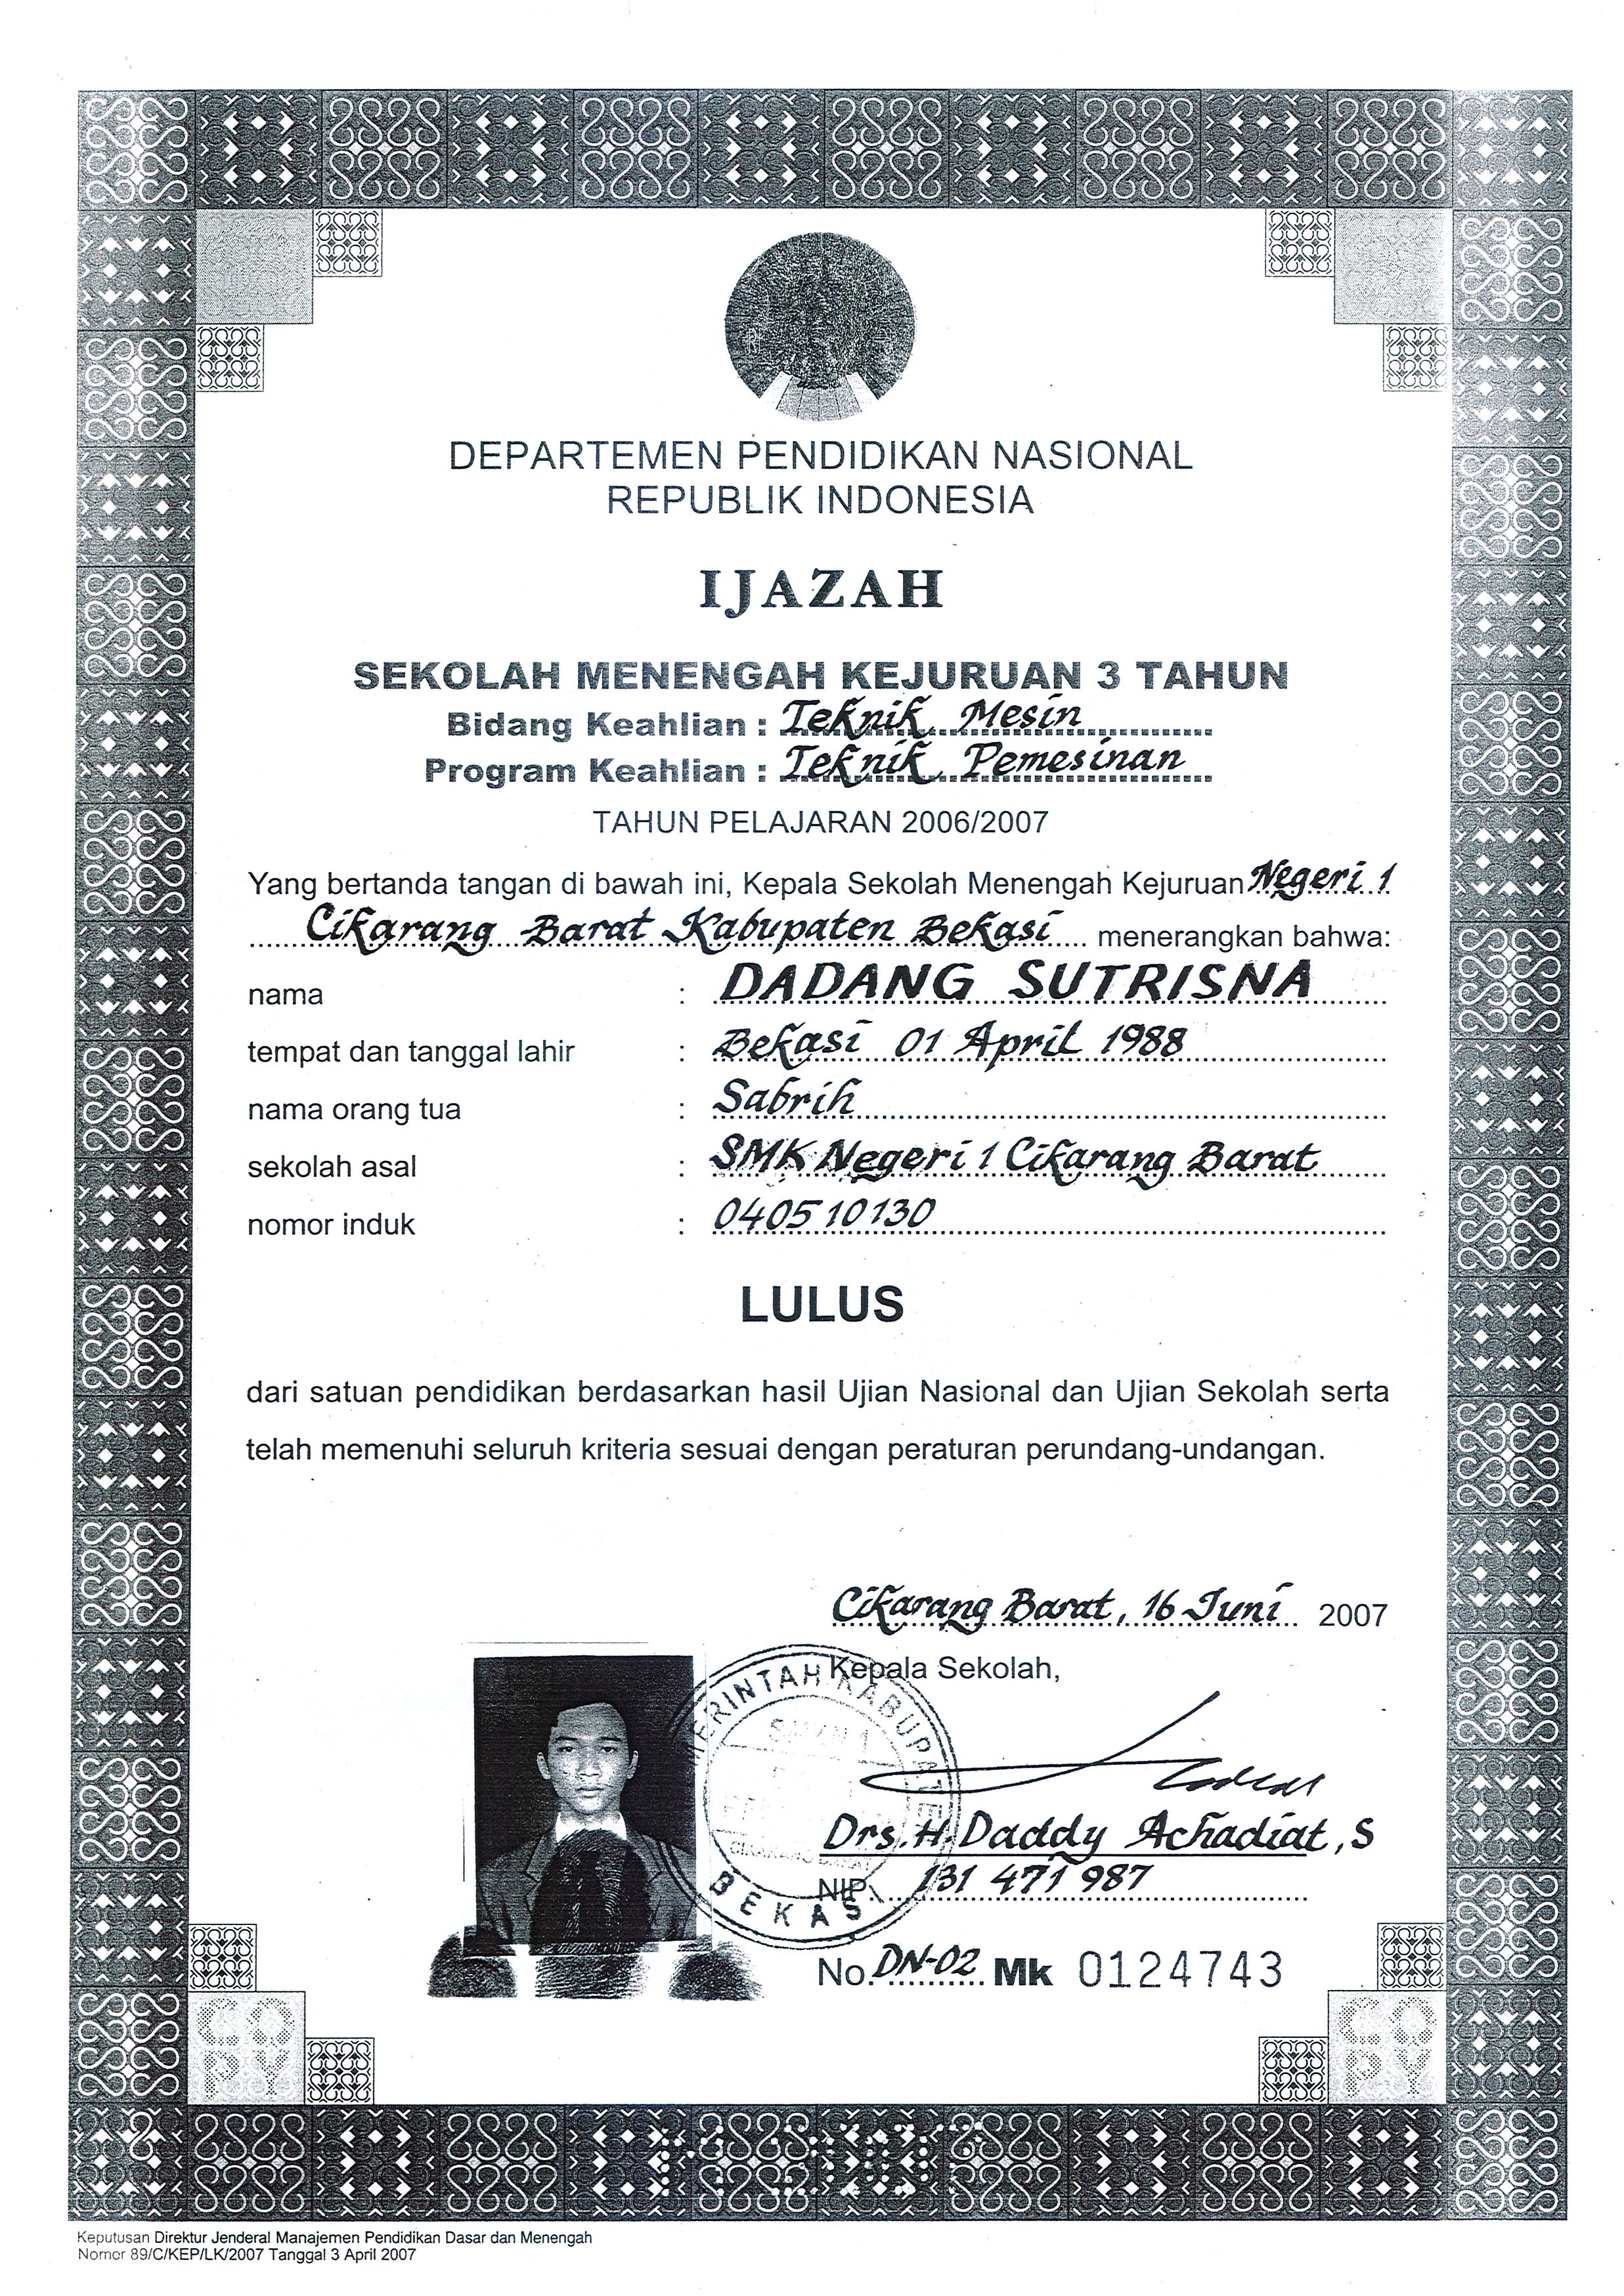 DEPARTEMEN PENDIDIKAN NASIONAL
REPUBLIK INDONESIA
IJAZAH
SEKOLAH MENENGAH KEJURUAN 3 TAHUN
Bidang Keahlian : Teknik Mesin
Program Keahlian : Teknik Pemesinan
TAHUN PELAJARAN 2006/2007
Yang bertanda tangan di bawah ini, Kepala Sekolah Menengah Kejuruan Negeri 1
Cikarang Barat Kabupaten Bekasi menerangkan bahwa:
nama : DADANG SUTRISNA
tempat dan tanggal lahir : Bekasi 01 April 1988
nama orang tua : Sabrih
sekolah asal : SMK Negeri 1 Cikarang Barat
nomor induk : 040510130
LULUS
dari satuan pendidikan berdasarkan hasil Ujian Nasional dan Ujian Sekolah serta
telah memenuhi seluruh kriteria sesuai dengan peraturan perundang-undangan.
Cikarang Barat, 16 Juni 2007
Kepala Sekolah,
MERINTAH KABUPATE
SMKN 1
CIKARANG BARAT
BEKASI
Drs. H. Daddy Achadiat, S
NIP. 131 471 987
No. DN-02 Mk 0124743
COPY
COPY
Keputusan Direktur Jenderal Manajemen Pendidikan Dasar dan Menengah
Nomor 89/C/KEP/LK/2007 Tanggal 3 April 2007